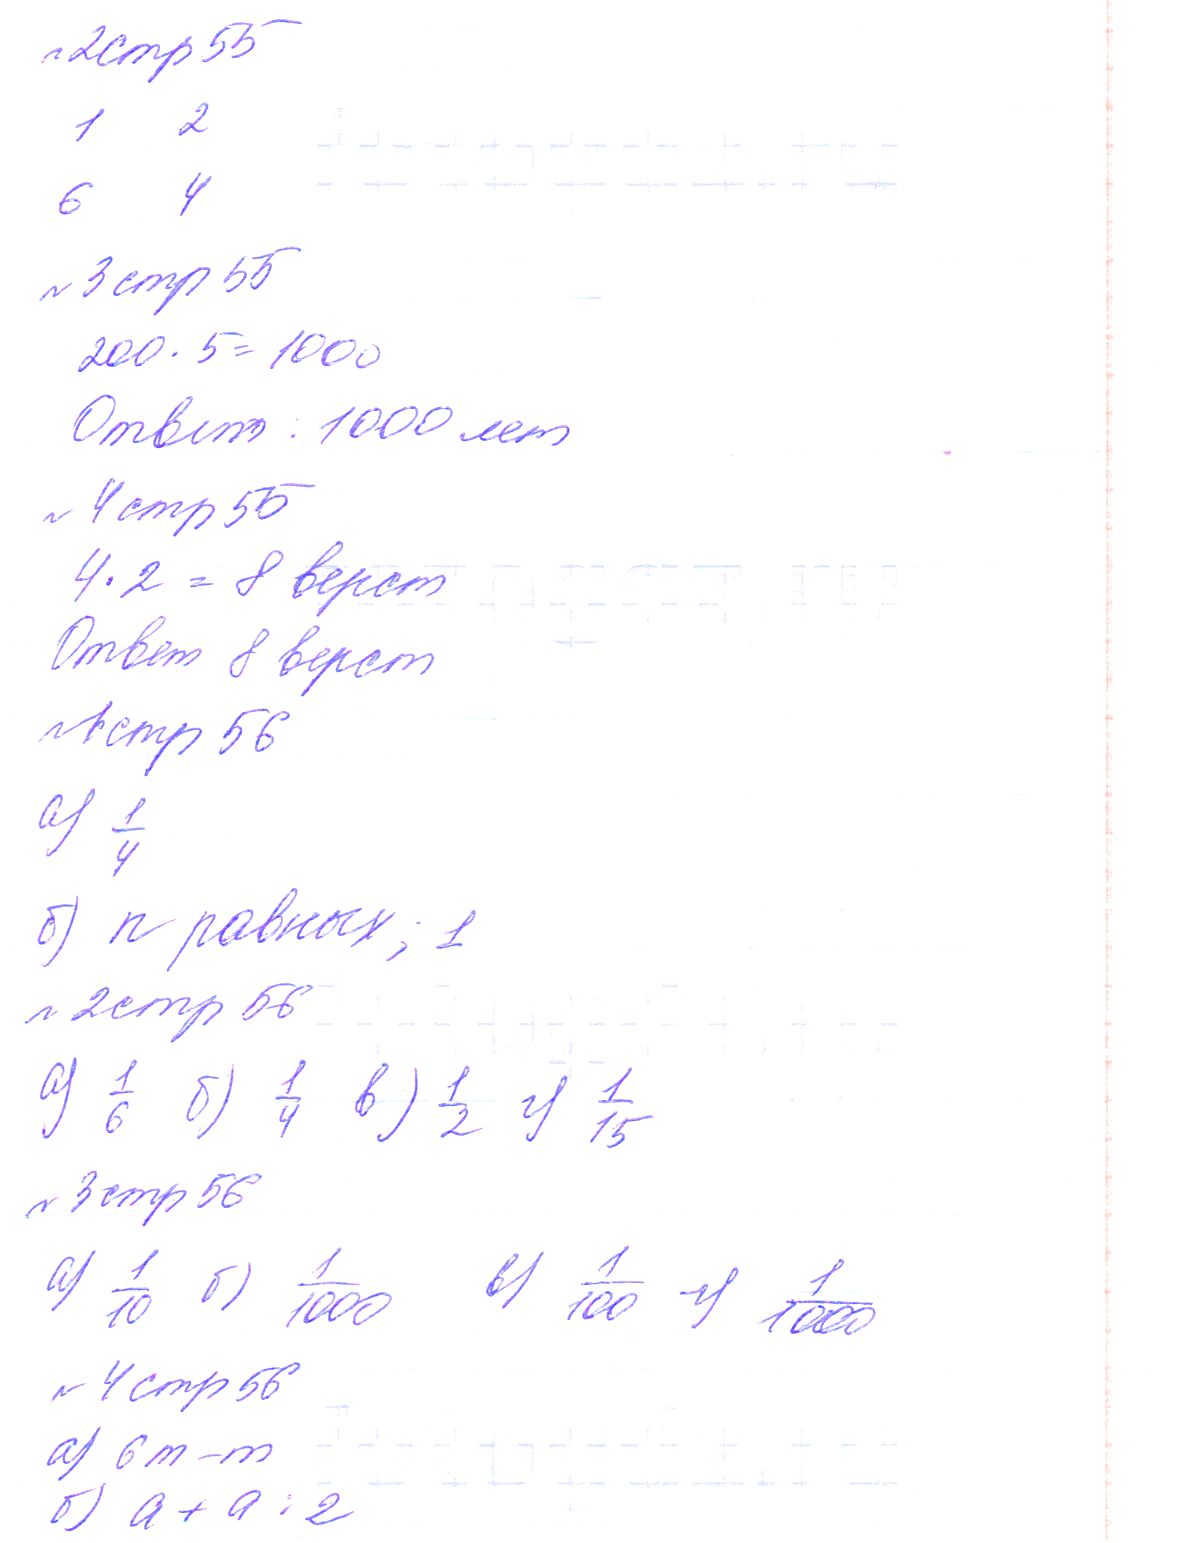 №2 стр 55
1 2
6 4
№3 стр 55
200 · 5 = 1000
Ответ: 1000 лет
№4 стр 55
4 · 2 = 8 верст
Ответ 8 верст
№1 стр 56
а) 1/4
б) n равных; 1
№2 стр 56
а) 1/6 б) 1/4 в) 1/2 г) 1/15
№3 стр 56
а) 1/10 б) 1/1000 в) 1/100 г) 1/1000
№4 стр 56
а) 6m - m
б) a + a : 2